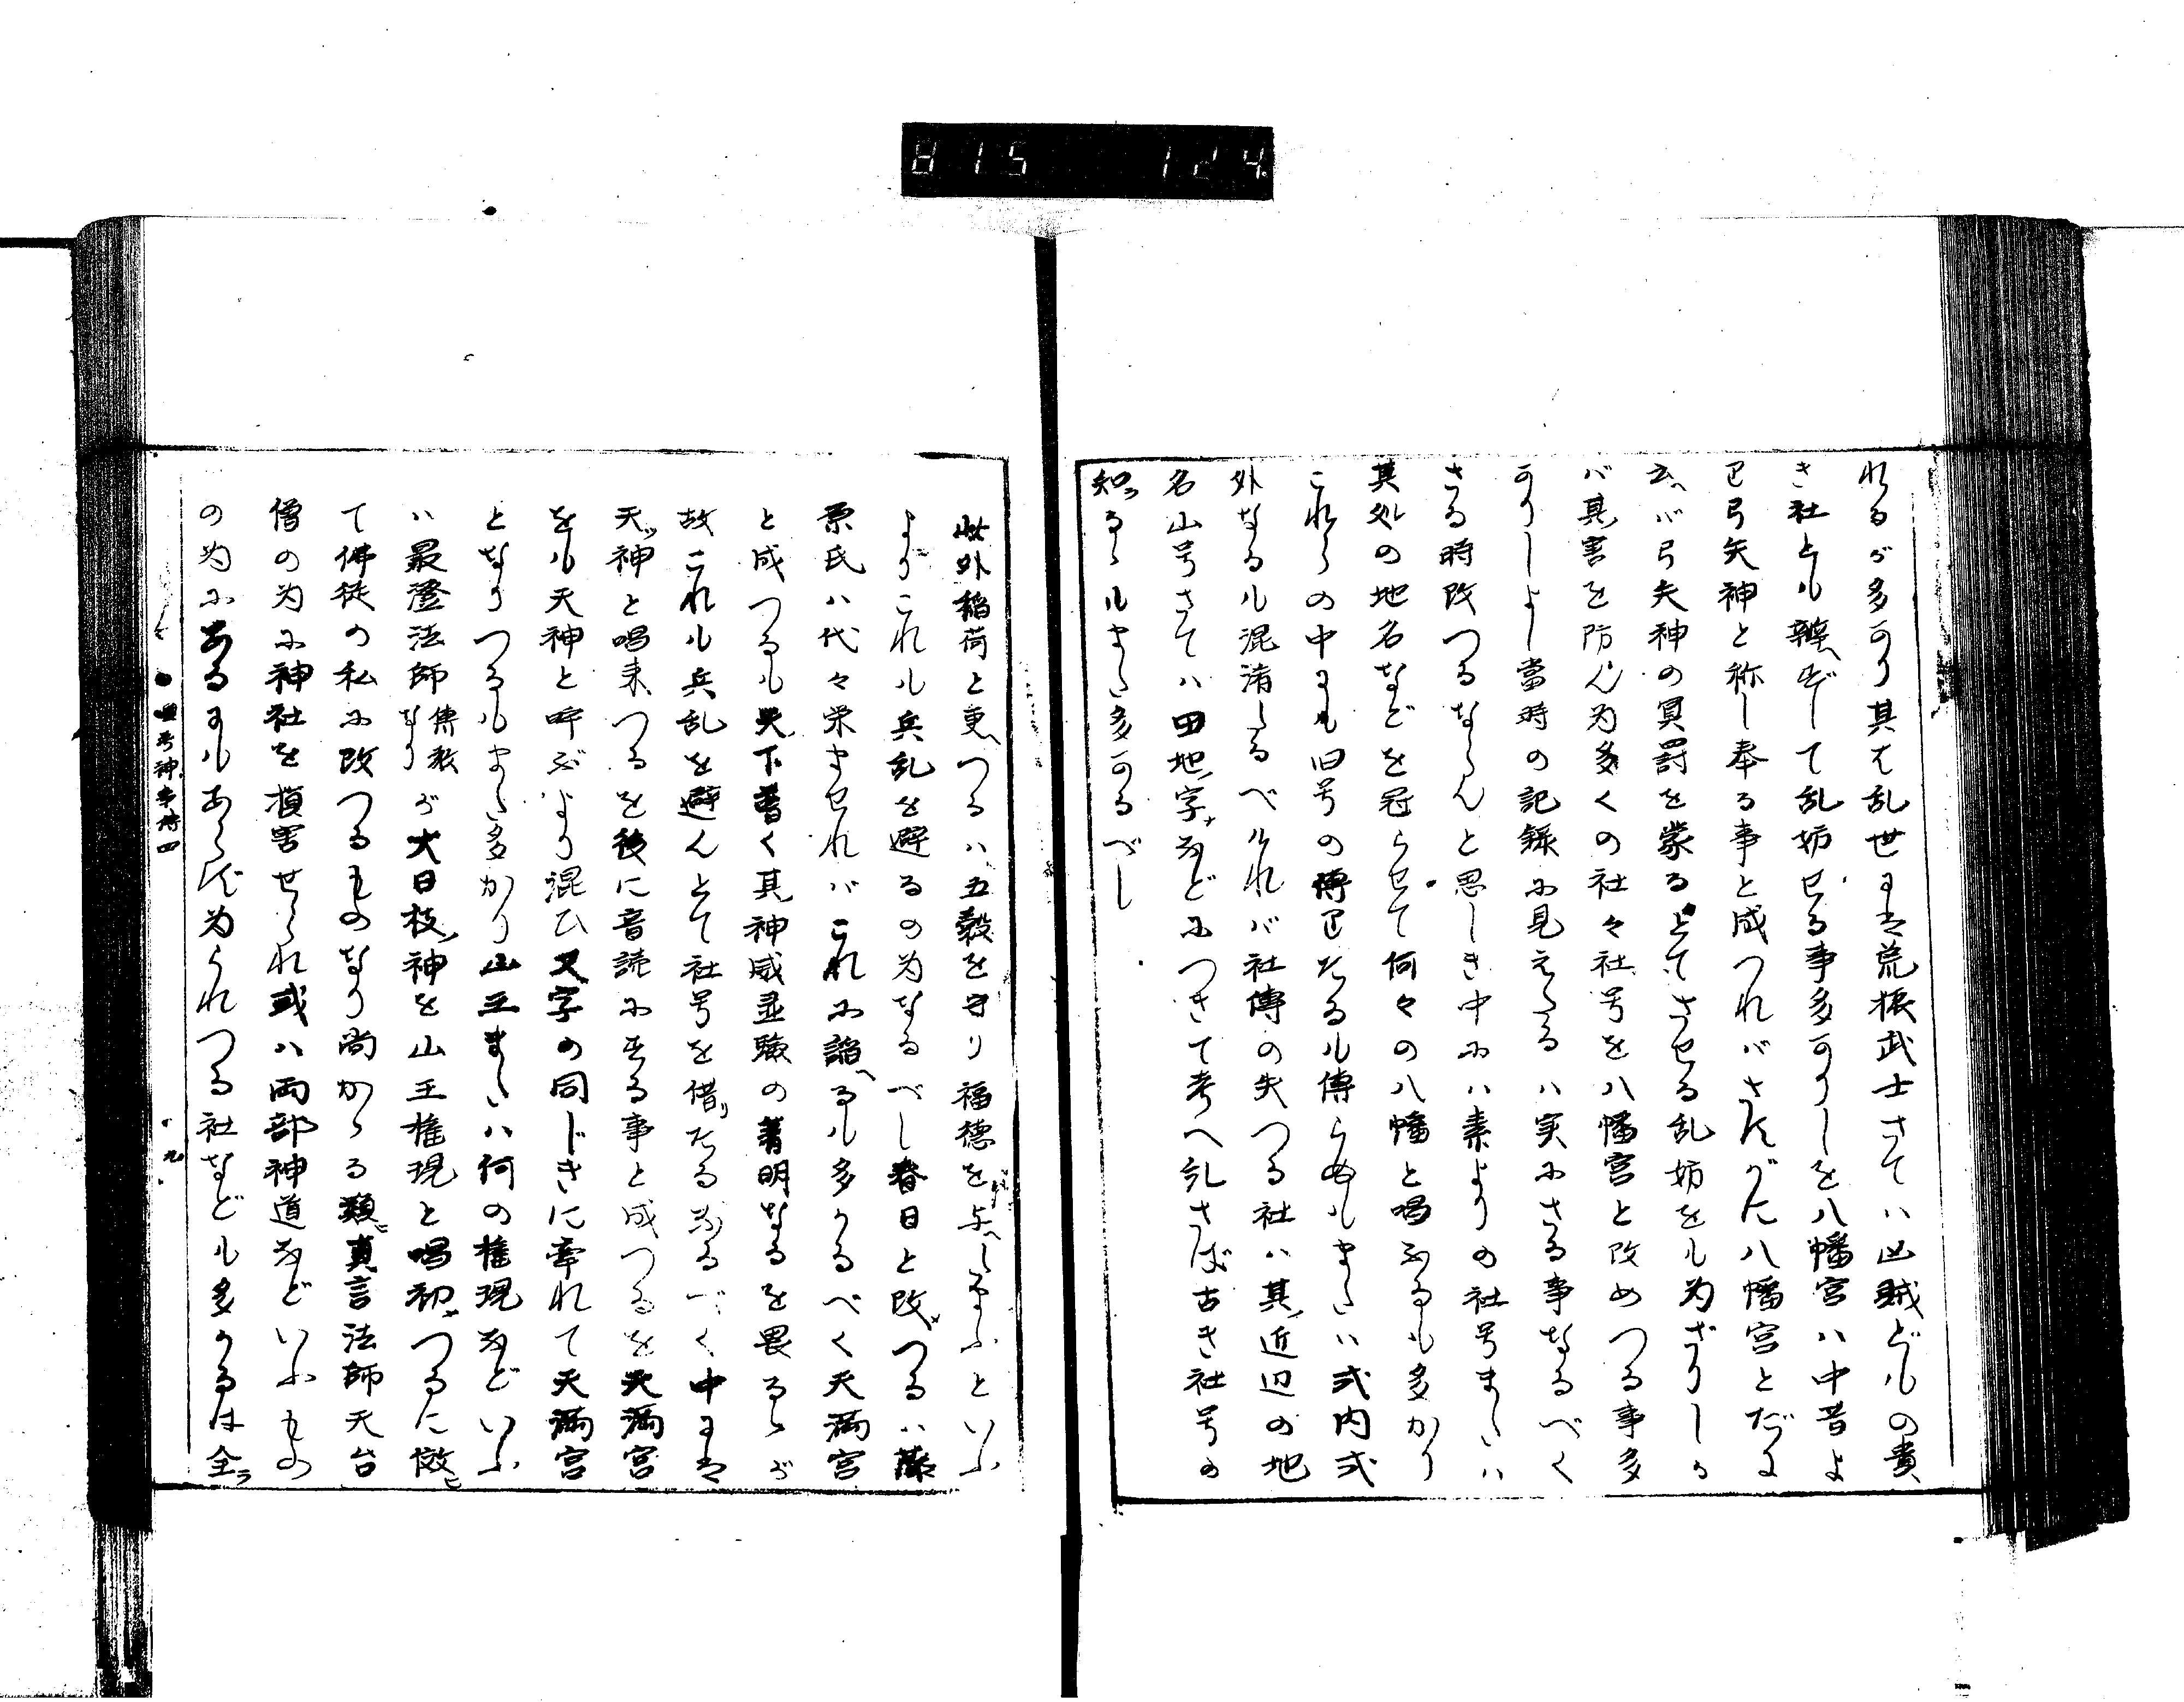 815 124
れるが多かり其は乱世には荒振武士さてハ凶賊どもの貴
き社とも辨へずして乱妨せる事多かりしを八幡宮ハ中昔よ
り弓矢神と称し奉る事と成つればさすがに八幡宮とだに
云へバ弓矢神の冥罰を蒙るとてさせる乱妨をも為ざりしか
バ其害を防んハ為多くの社々社号を八幡宮と改めつる事多
かりしよし當時の記録に見えたるハ実にさる事なるべく
さる時改つるならんと思しき中にハ素よりの社号またハ
其処の地名などを冠らせて何々の八幡と唱ふるも多かり
これらの中にも旧号の傳りたるも傳らぬもまたハ式内式
外なるも混淆たるべけれバ社傳の失つる社ハ其近辺の地
名山号さてハ田地ノ字などにつきて考へ糺さば古き社号の
知るゝもまた多かるべし
此外稲荷と更つるハ五穀を守り福徳を与へしたまふといふ
よりこれも兵乱を避るの為なるべし春日と改つるハ藤
原氏ハ代々栄ませれバこれに諂へるも多かるべく天満宮
と成つるも天下普く其神威霊験の著明なるを畏るゝが
故これも兵乱を避んとて社号を借りたるなるべく中には
天ツ神と唱来つるを後に音読にせる事と成つるを天満宮
をも天神と呼ぶより混ひ文字の同じきに牽れて天満宮
となりつるもまた多かり山王またハ何の権現などいふ
ハ最澄法師傳教なりが大日枝ノ神を山王権現と唱初つるに倣ヒ
て佛徒の私に改つるものなり尚かゝる類ヒ真言法師天台
僧の為に神社を損害せられ或ハ両部神道などいふもの
の為にあるにもあらず為られつる社なども多かるは全ラ